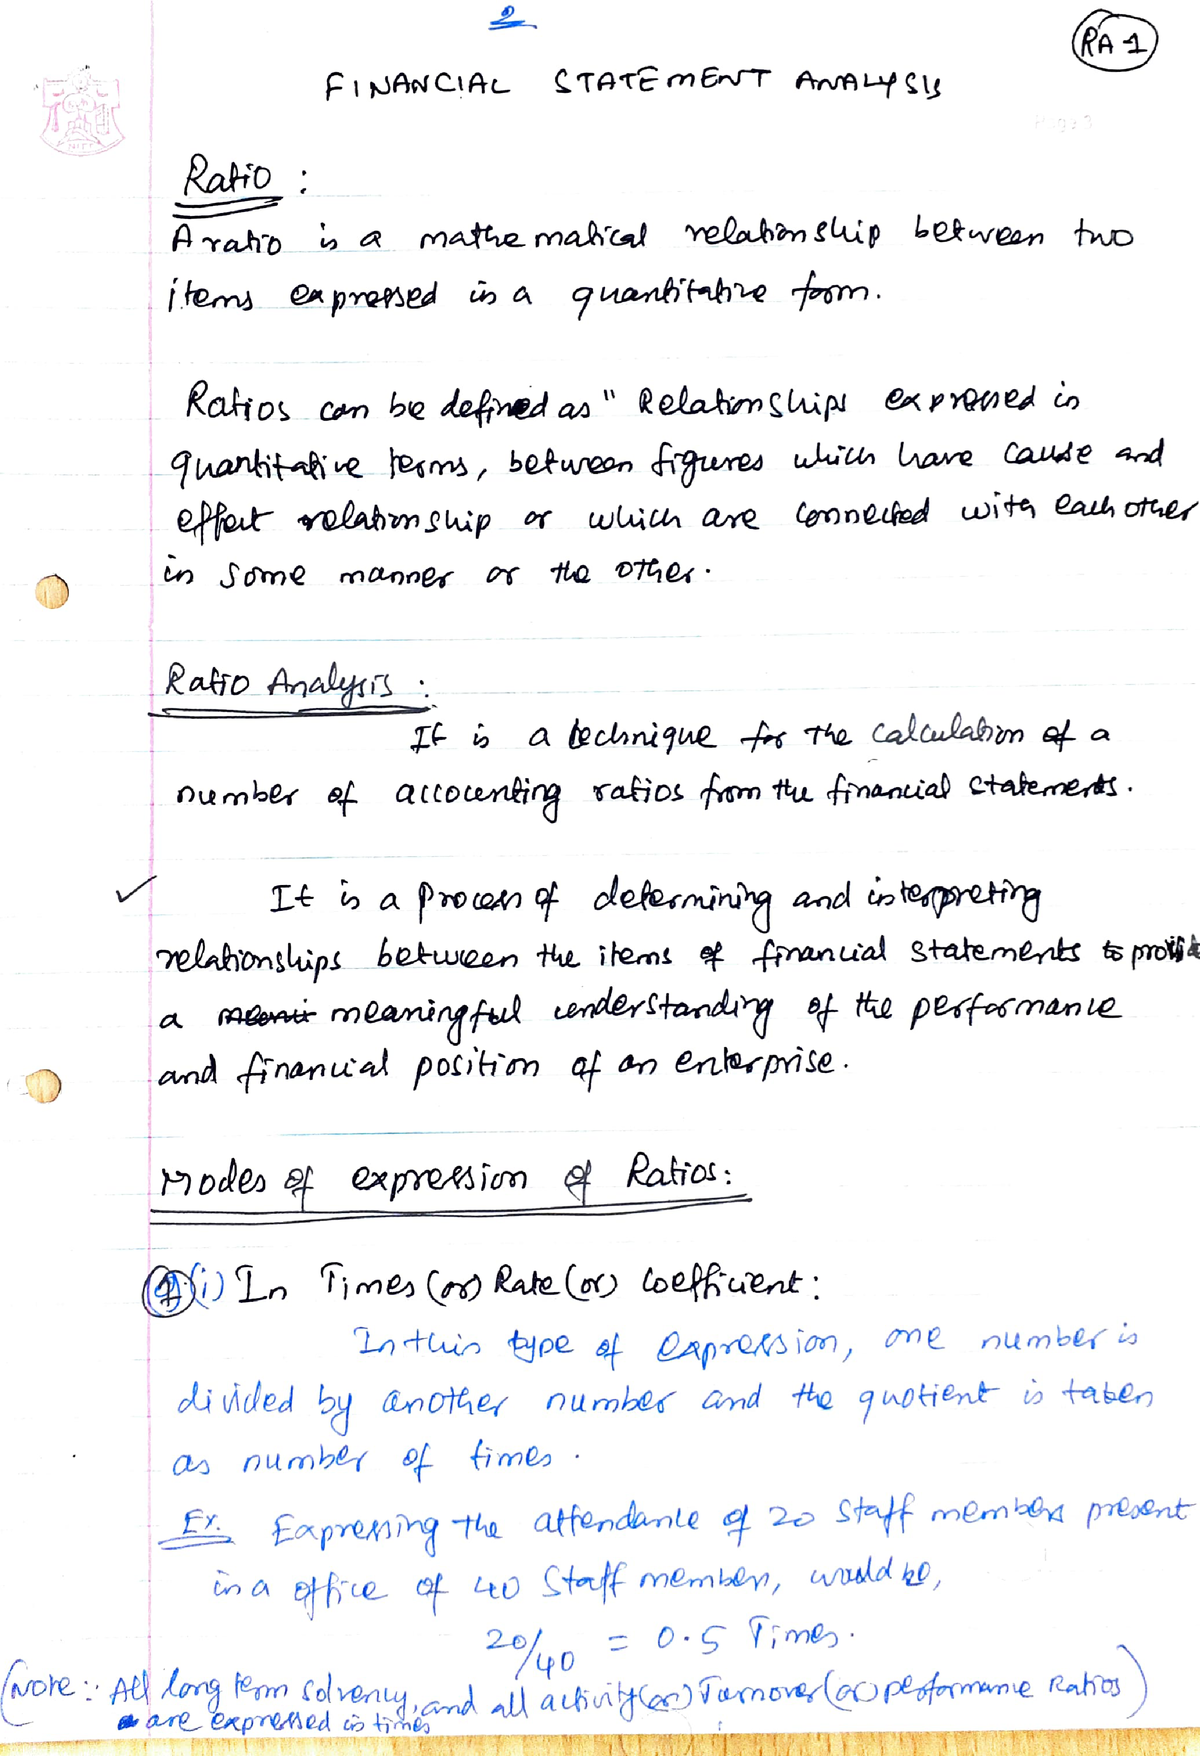 2
RA 1
FINANCIAL STATEMENT ANALYSIS
Page 3
NITT
Ratio :
A ratio is a mathematical relationship between two
items expressed in a quantitative form.
Ratios can be defined as " Relationships expressed in
quantitative terms, between figures which have cause and
effect relationship or which are connected with each other
in some manner or the other.
Ratio Analysis :
It is a technique for the calculation of a
number of accounting ratios from the financial statements.
It is a process of determining and interpreting
relationships between the items of financial statements to provide
a meaningful understanding of the performance
and financial position of an enterprise.
Modes of expression of Ratios:
(i) In Times (or) Rate (or) coefficient:
In this type of expression, one number is
divided by another number and the quotient is taken
as number of times.
Ex. Expressing the attendance of 20 staff members present
in a office of 40 staff members, would be,
20/40 = 0.5 Times.
(Note: All long term solvency, and all activity (or) Turnover (or) performance Ratios)
are expressed in times